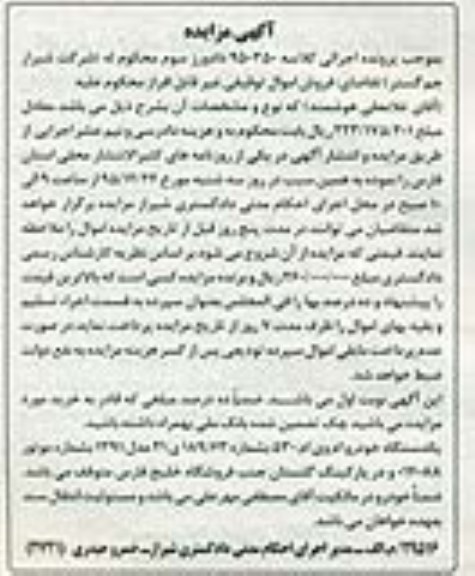 آگهی مزایده
بموجب پرونده اجرائی کلاسه ۳۵۰-۹۵ دادورز سوم محکوم له شرکت شیراز
تقاضای فروش اموال توقیفی غیر قابل افراز محکوم علیه
آقای غلامعلی هوشمند که نوع و مشخصات آن بشرح ذیل می باشد معادل
مبلغ ریال بابت محکوم به و هزینه دادرسی و نیم عشر اجرایی از
طریق مزایده و انتشار آگهی در یکی از روزنامه های کثیرالانتشار محلی استان
فارس را نموده به همین سبب در روز سه شنبه مورخ از ساعت ۹ الی
۱۰ صبح در محل اجرای احکام مدنی دادگستری شیراز مزایده برگزار خواهد
شد متقاضیان می توانند در مدت پنج روز قبل از تاریخ مزایده اموال را ملاحظه
نمایند. قیمتی که مزایده از آن شروع می شود بر اساس نظریه کارشناس رسمی
دادگستری مبلغ ریال و برنده مزایده کسی است که بالاترین قیمت
را پیشنهاد و ده درصد بها را فی المجلس بعنوان سپرده به قسمت اجراء تسلیم
و بقیه بهای اموال را ظرف مدت روز از تاریخ مزایده پرداخت نماید در صورت
عدم پرداخت مابقی اموال سپرده تودیعی پس از کسر هزینه مزایده به نفع دولت
ضبط خواهد شد.
این آگهی نوبت اول می باشد. ضمناً ده درصد مبلغی که قادر به خرید مورد
مزایده می باشید چک تضمین شده بانک ملی بهمراه داشته باشید.
یکدستگاه خودرو بشماره مدل ۱۳۹۱ بشماره موتور
و در پارکینگ گلستان جنب فروشگاه خلیج فارس متوقف می باشد.
ضمناً خودرو در مالکیت آقای مصطفی می باشد و مسئولیت انتقال سند
بعهده خواهان می باشد.
م الف ـ مدیر اجرای احکام مدنی دادگستری شیراز ـ خسرو حیدری